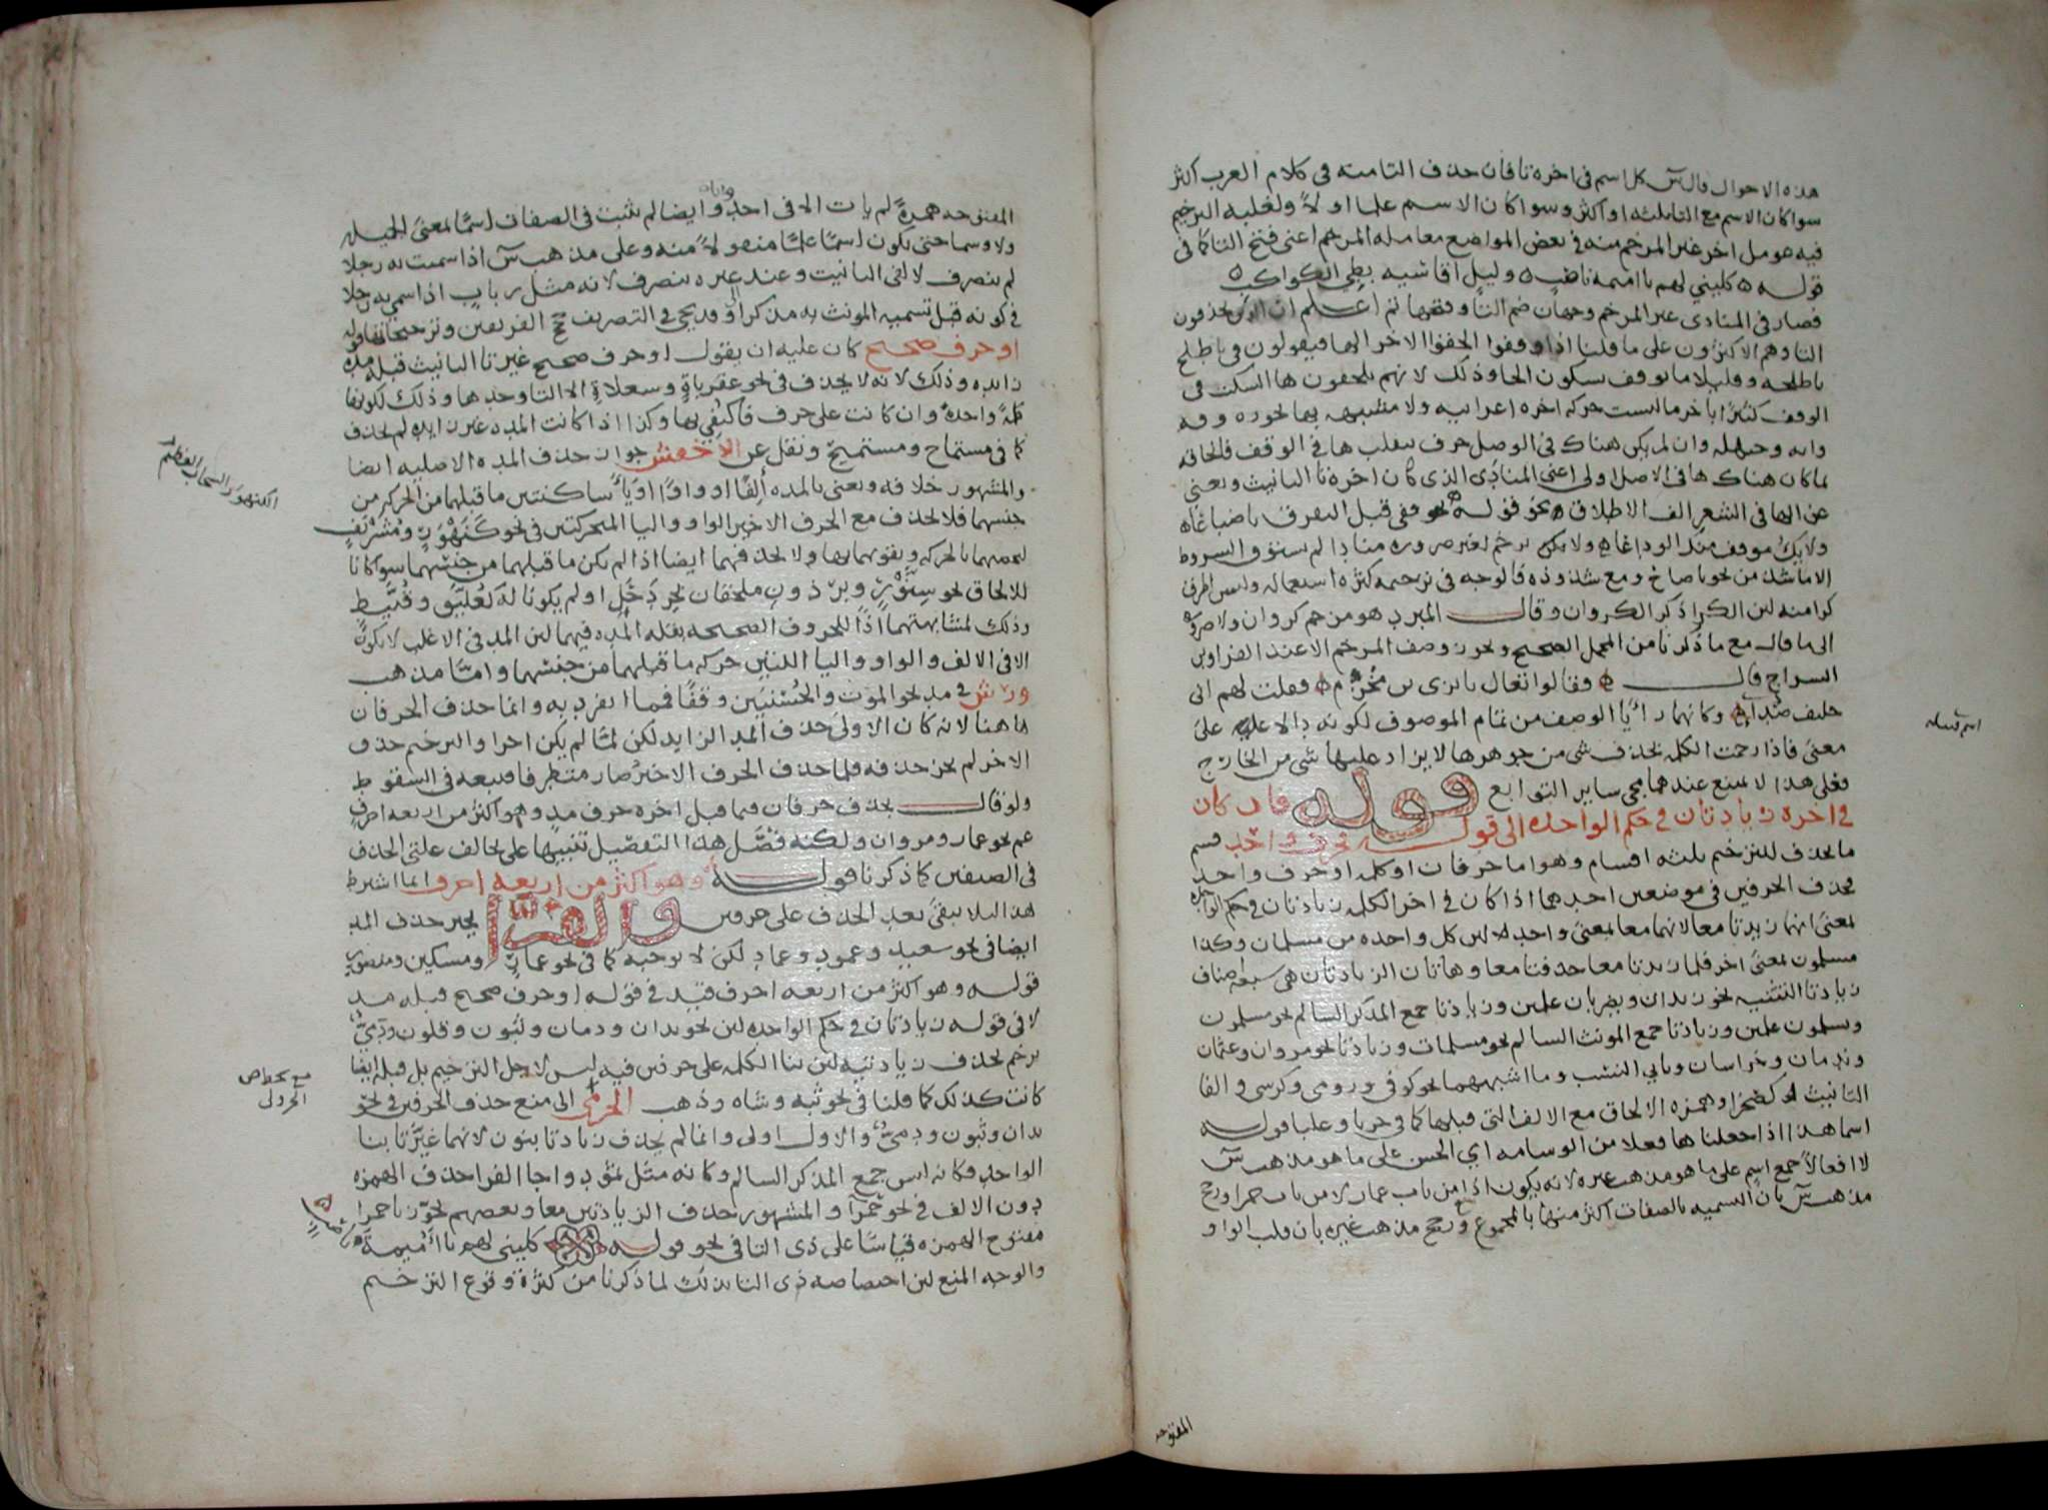 هذه الاحوال قال س كل اسم في اخره تا فان حذف التا منه في كلام العرب اكثر
سوا كان الاسم مع التا ثلثه او اكثر وسوا كان الاسم علما او لا ولغلبه الترخيم
فيه عومل اخر غير المرخم منه في بعض المواضع معامله المرخم اعنى فتح التا كما في
قوله ه كليني لهم يا اميمه ناصب ه وليل اقاسيه بطي الكواكب ه
فصار في المنادى غير المرخم وجهان ضم التا وفتحها ثم اعلم ان الذين يحذفون
التا وهم الاكثرون على ما قلنا اذا وقفوا الحقوا الاخر الها فيقولون في يا طلح
يا طلحه وقليلا ما يوقف بسكون الحا وذلك لانهم يلحقون ها السكت في
الوقف كثيرا باخر ما ليست حركه اخره اعرابيه ولا مشبهه بها نحو ره وقه
وانه وحيهله وان لم يكن هناك في الوصل حرف ينقلب ها في الوقف فالحاقه
بما كان هناك ها في الاصل اولى اعنى المنادى الذي كان اخره تا التانيث ويغنى
عن الها في الشعر الف الاطلاق نحو قوله قفي قبل التفرق يا ضباعا ه
ولا يك موقف منك الوداعا ه ولا يكن يرخم لغير ضروره مناد لم يستوف الشروط
الا ما شذ من نحو يا صاح ومع شذوذه فالوجه في ترخيمه كثره استعماله وليس اطرق
كرا منه لان الكرا ذكر الكروان وقال المبرد هو مرخم كروان ولا ضروره
الى ما قال مع ما ذكرنا من المحمل الصحيح ويجوز وصف المرخم الا عند الفرا وابن
السراج قال ه فقالوا تعال يا يزى بن مخرم ه فقلت لهم انى
حليف صداء ه وكانهما رايا الوصف من تمام الموصوف لكونه دالا عليه على
معنى فاذا رخمت الكلمه بحذف شى من جوهرها لا يزاد عليها شى من الخارج
فعلى هذا لا يمتنع عندهما مجى ساير التوابع قوله فان كان
في اخره زيادتان في حكم الواحده الى قوله فحرف واحد قسم
ما يحذف للترخيم ثلثه اقسام وهو اما حرفان او كلمه او حرف واحد
فحذف الحرفين في موضعين احدهما اذا كان في اخر الكلمه زيادتان في حكم الواحده
بمعنى انهما زيدتا معا لا انهما معا لمعنى واحد لان كل واحده من مسلمان وكذا
مسلمون لمعنى اخر فلما زيدتا معا حذفتا معا وهاتان الزيادتان هى سبعه اصناف
زيادتا التثنيه نحو زيدان ويضربان علمين وزيادتا جمع المذكر السالم نحو مسلمون
ويسلمون علمين وزيادتا جمع المونث السالم نحو مسلمات وزيادتا نحو مروان وعثمان
وندمان وخراسان ويائي النسب وما اشبههما نحو كوفي ورومى وكرسى والفا
التانيث كصحرا وهمزه الالحاق مع الالف التى قبلها كما في حربا وعلبا قوله
اسما هذا اذا جعلنا ها فعلا من الوسامه اي الحسن على ما هو مذهب س
لا افعالا جمع اسم على ما هو مذهب غيره لانه يكون اذا من باب عمار لا من باب حمرا ورجح
مذهب س بان التسميه بالصفات اكثر منها بالجموع ورجح مذهب غيره بان قلب الواو
المفتوحه
اسم قبيله
المفتوحه همزة لم يات الا في احد واناة وايضا لم يثبت في الصفات اسما بمعنى الجميله
ولا وسما حتى يكون اسما علما منقولا منه وعلى مذهب س اذا سميت به رجلا
لم ينصرف لالفى التانيث وعند غيره ينصرف لانه مثل رباب اذا سمي به رجلا
في كونه قبل تسميه المونث به مذكرا ويجى في التصريف الفريقين وترجيحاتهما قوله
او حرف صحيح كان عليه ان يقول او حرف صحيح غير تا التانيث قبله مده
زايده وذلك لانه لا يحذف في نحو عقرباة وسعلاة الا التا وحدها وذلك لكونها
كلمة واحدة وان كانت على حرف فاكتفي بها وكذا اذا كانت المده غير زايده لم يحذف
كما في مستماح ومستميح ونقل عن الاخفش جواز حذف المده الاصليه ايضا
والمشهور خلافه ويعنى بالمده ألفا او واوا او يا ساكنتين ما قبلهما من الحركه من
جنسهما فلا يحذف مع الحرف الاخير الواو واليا المتحركتين في نحو كنهور ومشريف
لتحصنهما بالحركه وتقويهما بها ولا يحذفهما ايضا اذا لم يكن ما قبلهما من جنسهما سوا كانا
للالحاق نحو سنور وبرذون ملحقان بجردحل او لم يكونا له كعليق وقبيط
وذلك لمشابهتهما اذا للحروف الصحيحه بقله المده فيهما لان المد في الاغلب لا يكون
الا في الالف والواو واليا اللتين حركه ما قبلهما من جنسهما واما مذهب
ورش في مد نحو الموت والحسنيين وقفا فمما انفرد به وانما حذف الحرفان
هاهنا لانه كان الاولى حذف المد الزايد لكن لما لم يكن اخرا والترخيم حذف
الاخر لم يجز حذفه فلما حذف الحرف الاخير صار متطرفا فتبعه في السقوط
ولو قال يحذف حرفان فيما قبل اخره حرف مد وهو اكثر من اربعه احرف
عم نحو عمار ومروان ولكنه فصل هذا التفصيل تنبيها على تخالف علتى الحذف
في الصنفين كما ذكرنا قوله وهو اكثر من اربعه احرف انما اشترط
هذا لئلا يبقى بعد الحذف على حرفين والفرا يجيز حذف المد
ايضا في نحو سعيد وعمود وعماد لكن لا يوجبه كما في نحو عمار ومسكين ومنصور
قوله وهو اكثر من اربعه احرف قيد في قوله او حرف صحيح قبله مد
لا في قوله زيادتان في حكم الواحده لان نحو يدان ودمان وثبون وقلون ودمى
يرخم بحذف زيادتيه لان بنا الكلمه على حرفين فيه ليس لاجل الترخيم بل قبله ايضا
كانت كذلك كما قلنا في نحو ثبه وشاه وذهب الجرمى الى منع حذف الحرفين في نحو
يدان وثبون ودمى والاول اولى وانما لم يحذف زيادتا بنون لانهما غيرتا بنا
الواحد فكانه ليس جمع المذكر السالم وكانه مثل ثمود واجاز الفرا حذف الهمزه
دون الالف في نحو حمرا والمشهور حذف الزيادتين معا وبعضهم يجوز يا حمرا
مفتوح الهمزه قياسا على ذى التا في نحو قوله كليني لهم يا اميمة
والوجه المنع لان اختصاصه ذى التا بذلك لما ذكرنا من كثرة وقوع الترخيم
الكنهور السحاب العظيم
ناصب